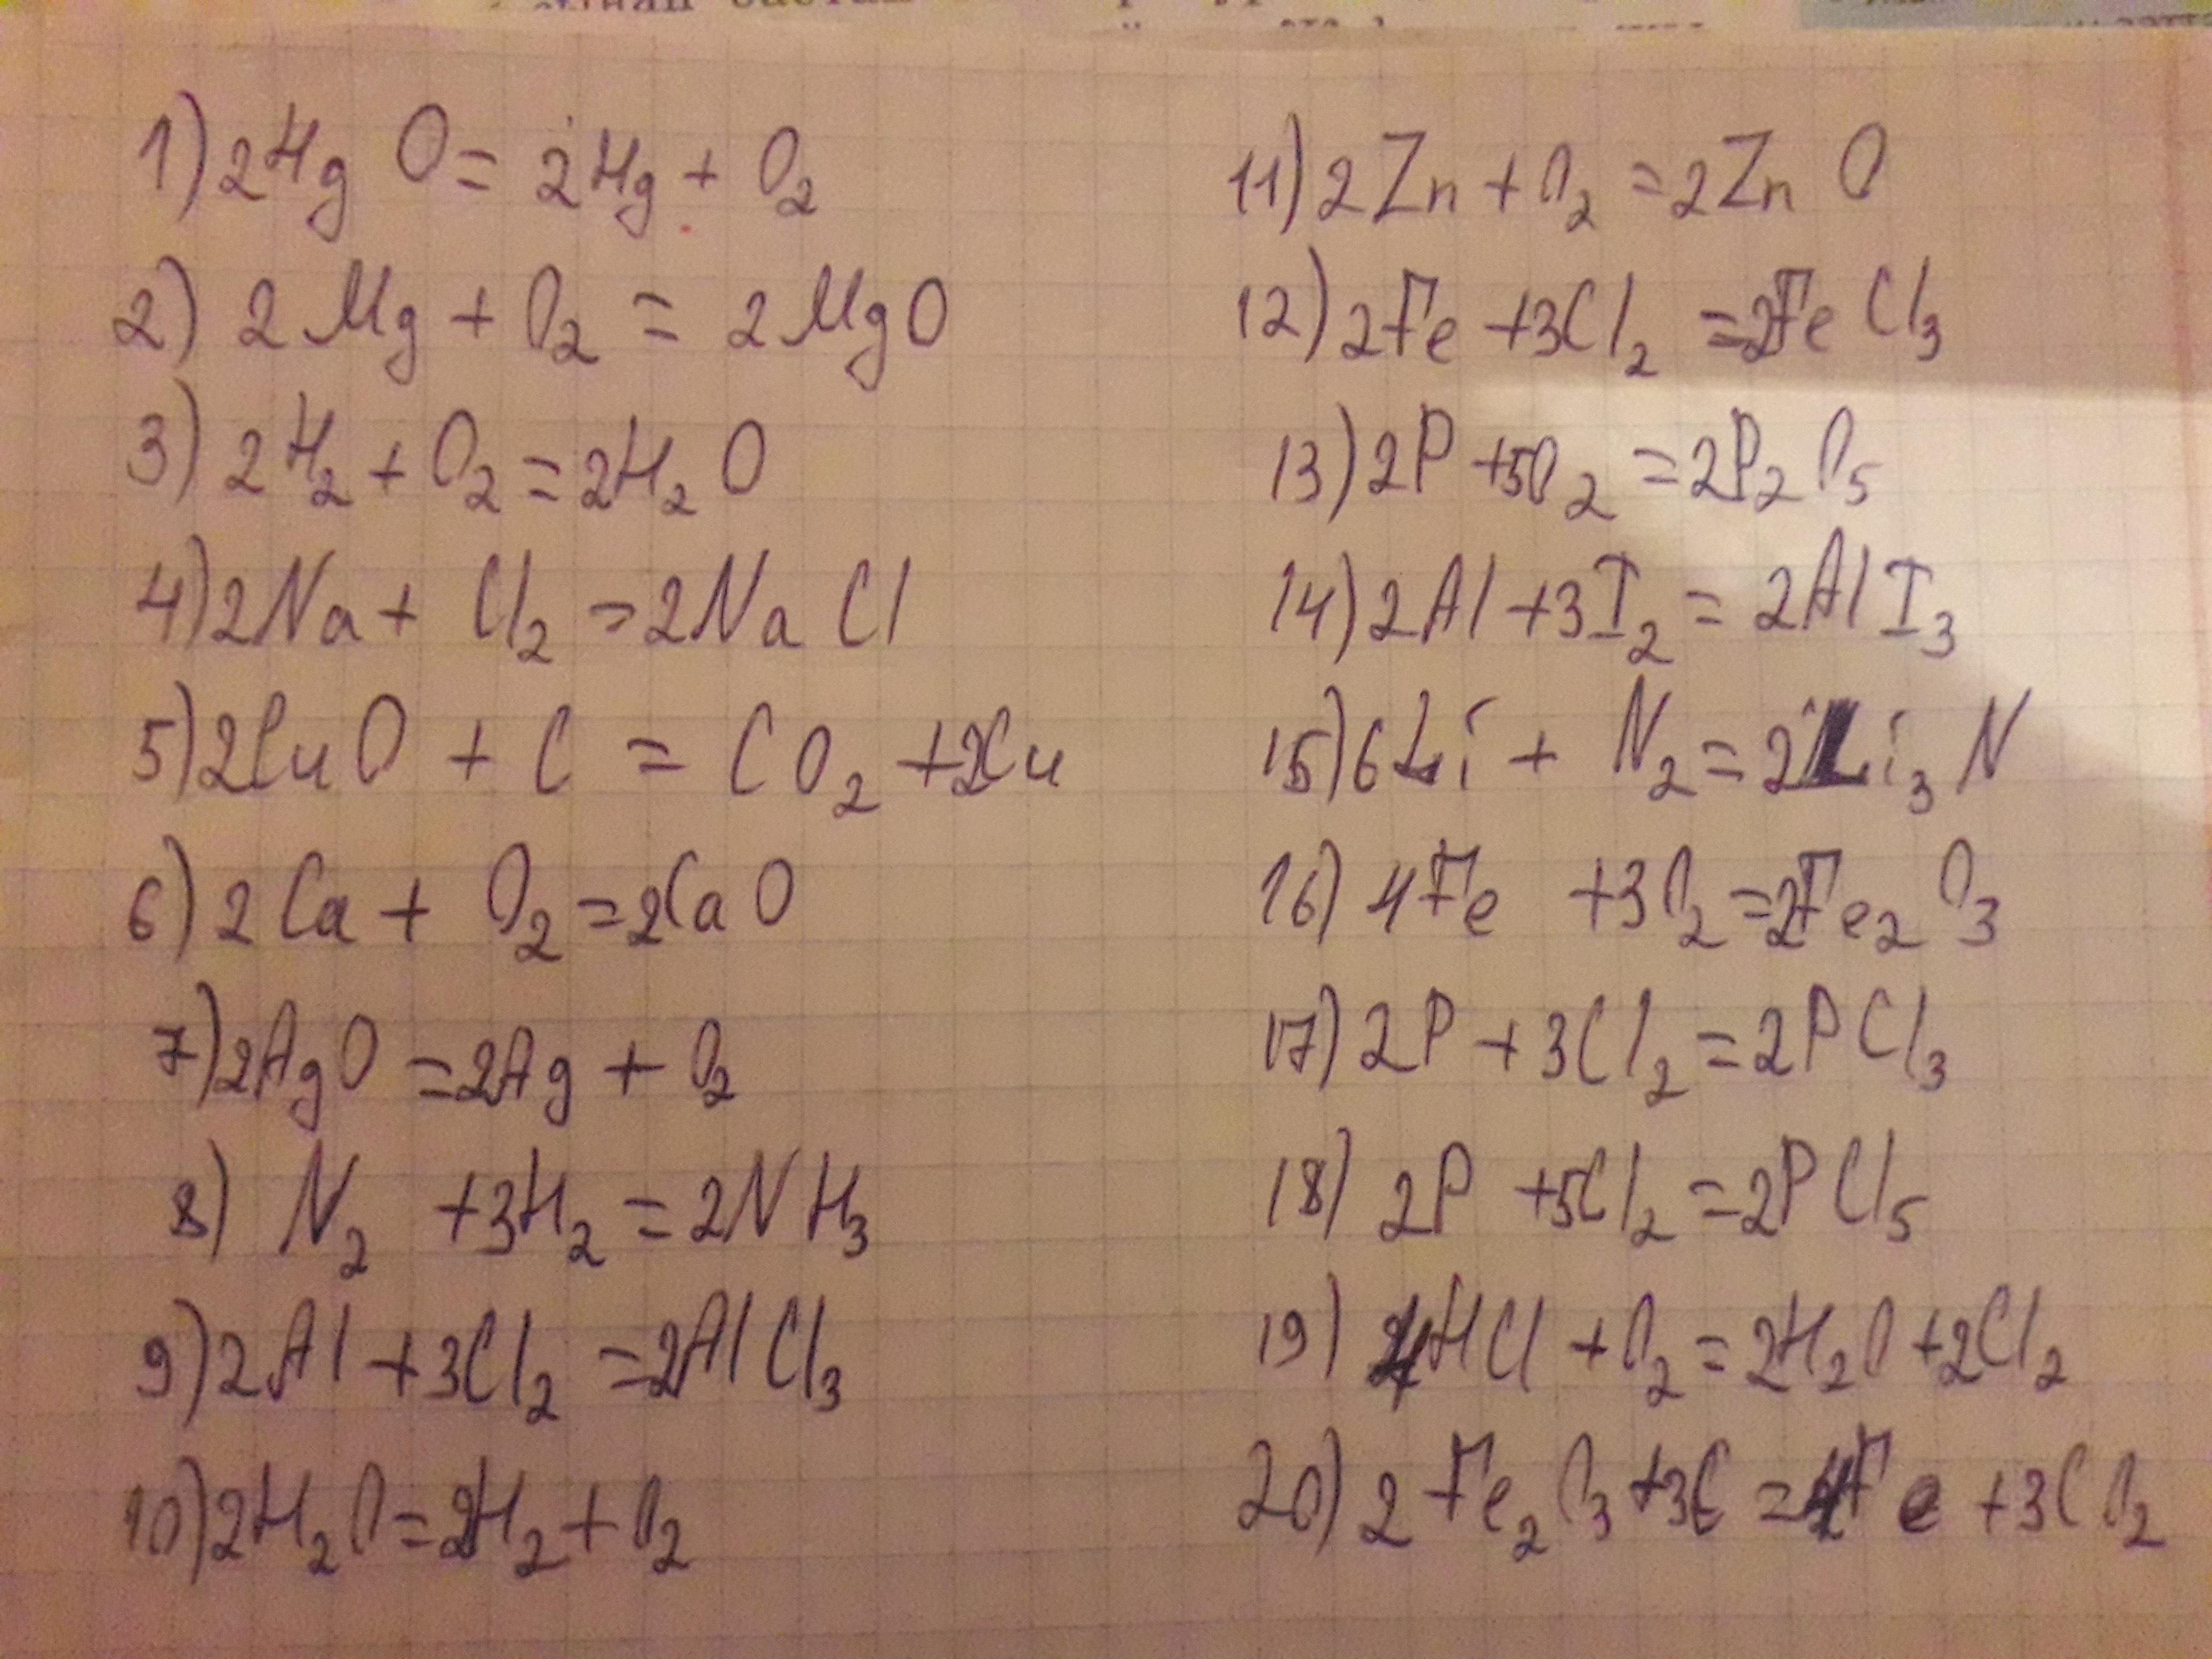 1) 2HgO = 2Hg + O₂
2) 2Mg + O₂ = 2MgO
3) 2H₂ + O₂ = 2H₂O
4) 2Na + Cl₂ = 2NaCl
5) 2CuO + C = CO₂ + 2Cu
6) 2Ca + O₂ = 2CaO
7) 2AgO = 2Ag + O₂
8) N₂ + 3H₂ = 2NH₃
9) 2Al + 3Cl₂ = 2AlCl₃
10) 2H₂O = 2H₂ + O₂
11) 2Zn + O₂ = 2ZnO
12) 2Fe + 3Cl₂ = 2FeCl₃
13) 2P + 5O₂ = 2P₂O₅
14) 2Al + 3I₂ = 2AlI₃
15) 6Li + N₂ = 2Li₃N
16) 4Fe + 3O₂ = 2Fe₂O₃
17) 2P + 3Cl₂ = 2PCl₃
18) 2P + 5Cl₂ = 2PCl₅
19) 4HCl + O₂ = 2H₂O + 2Cl₂
20) 2Fe₂O₃ + 3C = 4Fe + 3CO₂